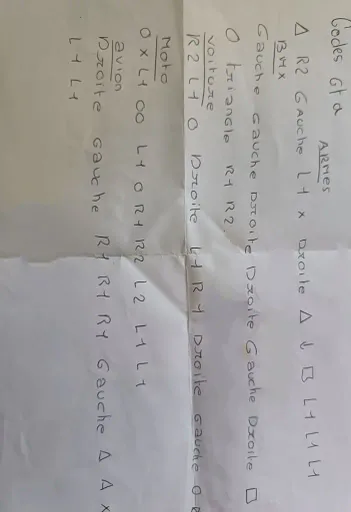 Codes Gta
ARMES
Δ R2 GAuche L1 x Droite Δ ↓ □ L1 L1 L1
BMX
Gauche Gauche Droite Droite Gauche Droite □
O triangle R1 R2
Voiture
R2 L1 O Droite L1 R1 Droite Gauche O R
Moto
O x L1 OO L1 O R1 R2 L2 L1 L1
avion
Droite Gauche R1 R1 R1 Gauche Δ Δ x
L1 L1